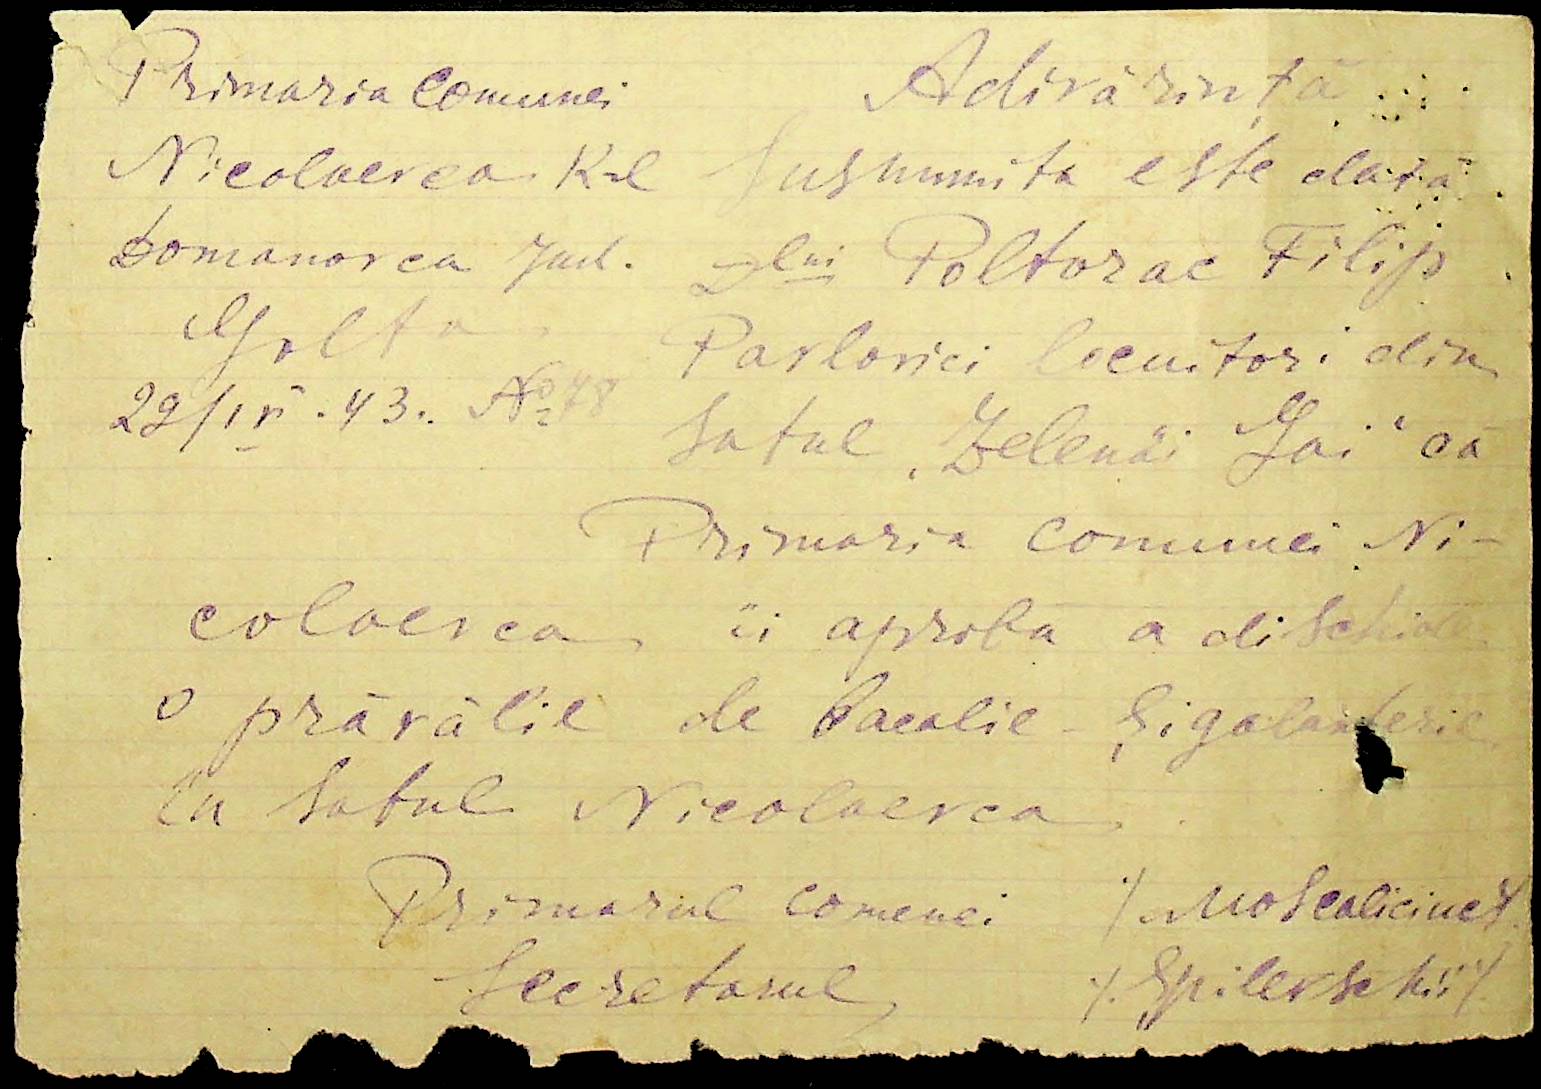 Primaria Comunei
Nicolaevca R-l
Domanovca Jud.
Golta
29/IV.43. № 48
Adivărință
Susnumita este dată
Dlui Poltorac Filip
Pavlovici locuitori din
Satul „Zelenâi Gai“ că
Primaria comunei Ni-
colaevca îi aproba a dischide
o prăvălie de bacalie și galanterie
în Satul Nicolaevca.
Primarul comenei /Moscaliciuc/
Secretarul /Spilevschii/